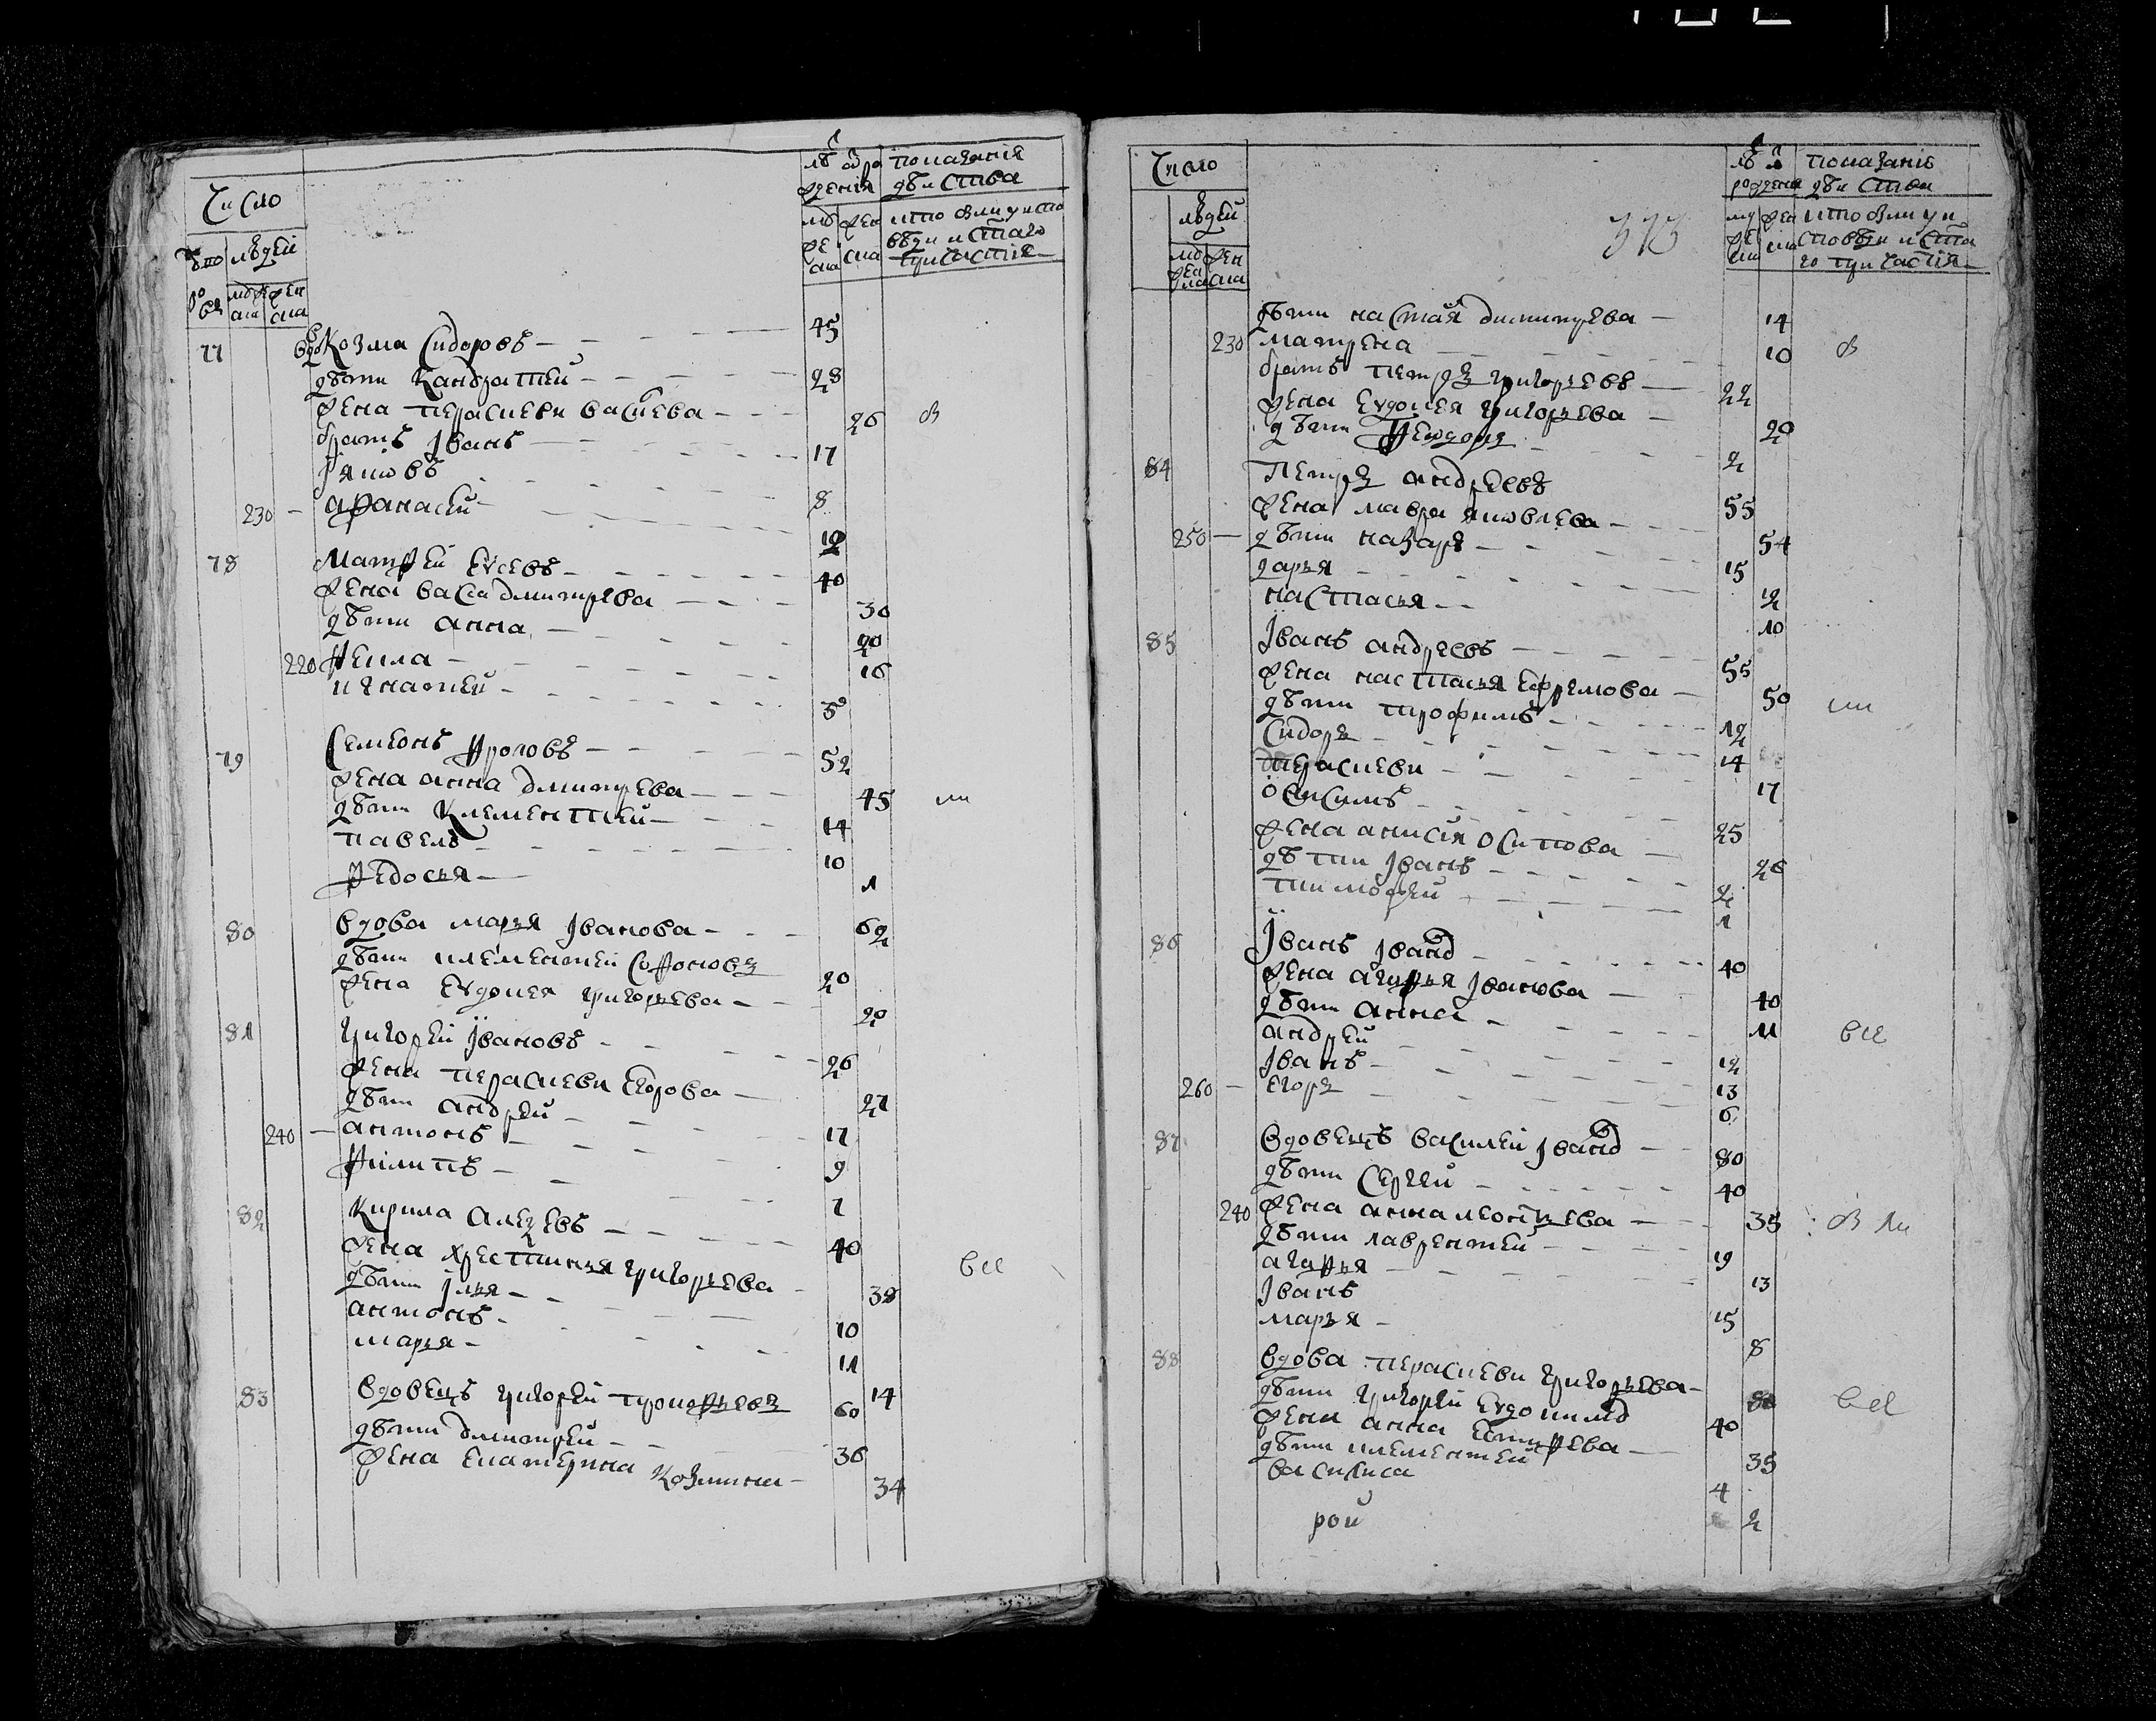 Число
дворовъ
людей
мужеска
женска
лѣтъ от рожденія
мужеска
женска
показанія
дѣйства
кто былъ у исповѣди и святаго причастія
77 вдо Козма Сидоровъ 45
дѣти Кандратей 28
жена Перасковя Василева 26 в
братъ Іванъ 17
Яковъ 8
230 Афанасей 10
78 Матфей Гусевъ 40
жена Васса Дмитрева 30
дѣти Анна 20
220 Фекла 16
Игнатей 3
79 Семіонъ Фроловъ 52
жена Анна Дмитрева 45 ми
дѣти Клементей 14
Павелъ 10
Федосья 1
80 вдова Марья Іванова 62
дѣти Клементей Софоновъ 20
жена Евдокея Григорьева 20
81 Григорей Івановъ 26
жена Перасковя Егорова 27
дѣти Андрей 17
240 Антонъ 9
Филипъ 2
82 Кирила Алеѯевъ 40
жена Хрестинья Григорьева 38 все
дѣти Ілья 10
Антонъ 11
Марья 14
83 вдовецъ Григорей Прокофьевъ 60
дѣти Дмитрей 36
жена Екатерина Козмина 34
Число
людей
мужеска
женска
лѣтъ от рожденія
показанія дѣйства
мужеска
женска
кто былъ у исповѣди и святаго причастія
373
дѣти Настая Дмитрева 14
230 Матрена 10 в
братъ Петръ Григорьевъ 22
жена Евдокея Григорьева 20
дѣти Феодоръ 2
84 Петръ Андреевъ 55
жена Мавра Яковлева 54
250 дѣти Назаръ 15
Дарья 12
Настасья 10
85 Іванъ Андреевъ 55
жена Настасья Ефремова 50 ми
дѣти Трофимъ 19
Сидоръ 14
Перасковя 17
Овсимъ 25
жена Анисія Осипова 26
дѣти Іванъ 2
Тимофей 1
86 Іванъ Івано 40
жена Агафья Іванова 40
дѣти Анна 11 все
Андрей 12
Іванъ 13
260 Егоръ 6
87 вдовецъ Василей Івано 80
дѣти Сергей 40
240 жена Анна Леонтьева 35
дѣти Лаврентей 19
Агафья 13
Іванъ 15
Марья 8
88 вдова Перасковя Григорьева 80 все
дѣти Григорей Евдокимо 40
жена Анна 35
дѣти Клементей 4
Василиса 2
рой